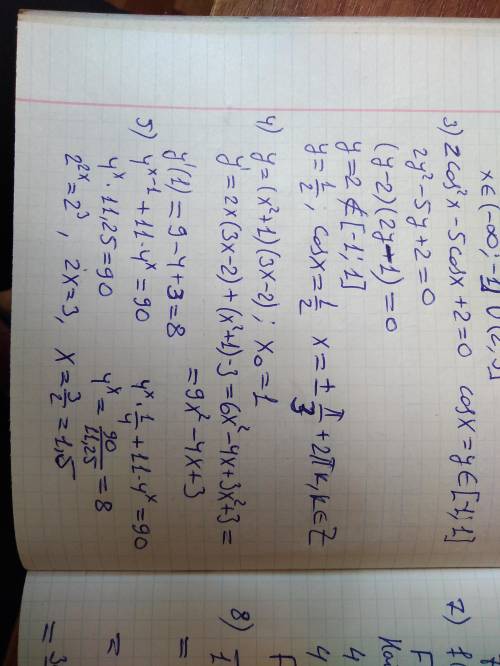 x∈(-∞; 1] ∪ (2; 3]
3) 2cos²x - 5cosx + 2 = 0   cosx = y ∈ [-1; 1]
2y² - 5y + 2 = 0
(y-2)(2y-1) = 0
y = 2 ∉ [-1; 1]
y = 1/2, cosx = 1/2   x = ± π/3 + 2πk, k∈Z
4) y = (x²+1)(3x-2); x₀ = 1
y' = 2x(3x-2) + (x²+1)·3 = 6x² - 4x + 3x² + 3 =
= 9x² - 4x + 3
y'(1) = 9 - 4 + 3 = 8
5) 4ˣ⁻¹ + 11·4ˣ = 90   4ˣ·1/4 + 11·4ˣ = 90
4ˣ · 11,25 = 90   4ˣ = 90/11,25 = 8
2²ˣ = 2³, 2x = 3, x = 3/2 = 1,5
7) f
F
4
4
8)
F
=
=
= 3